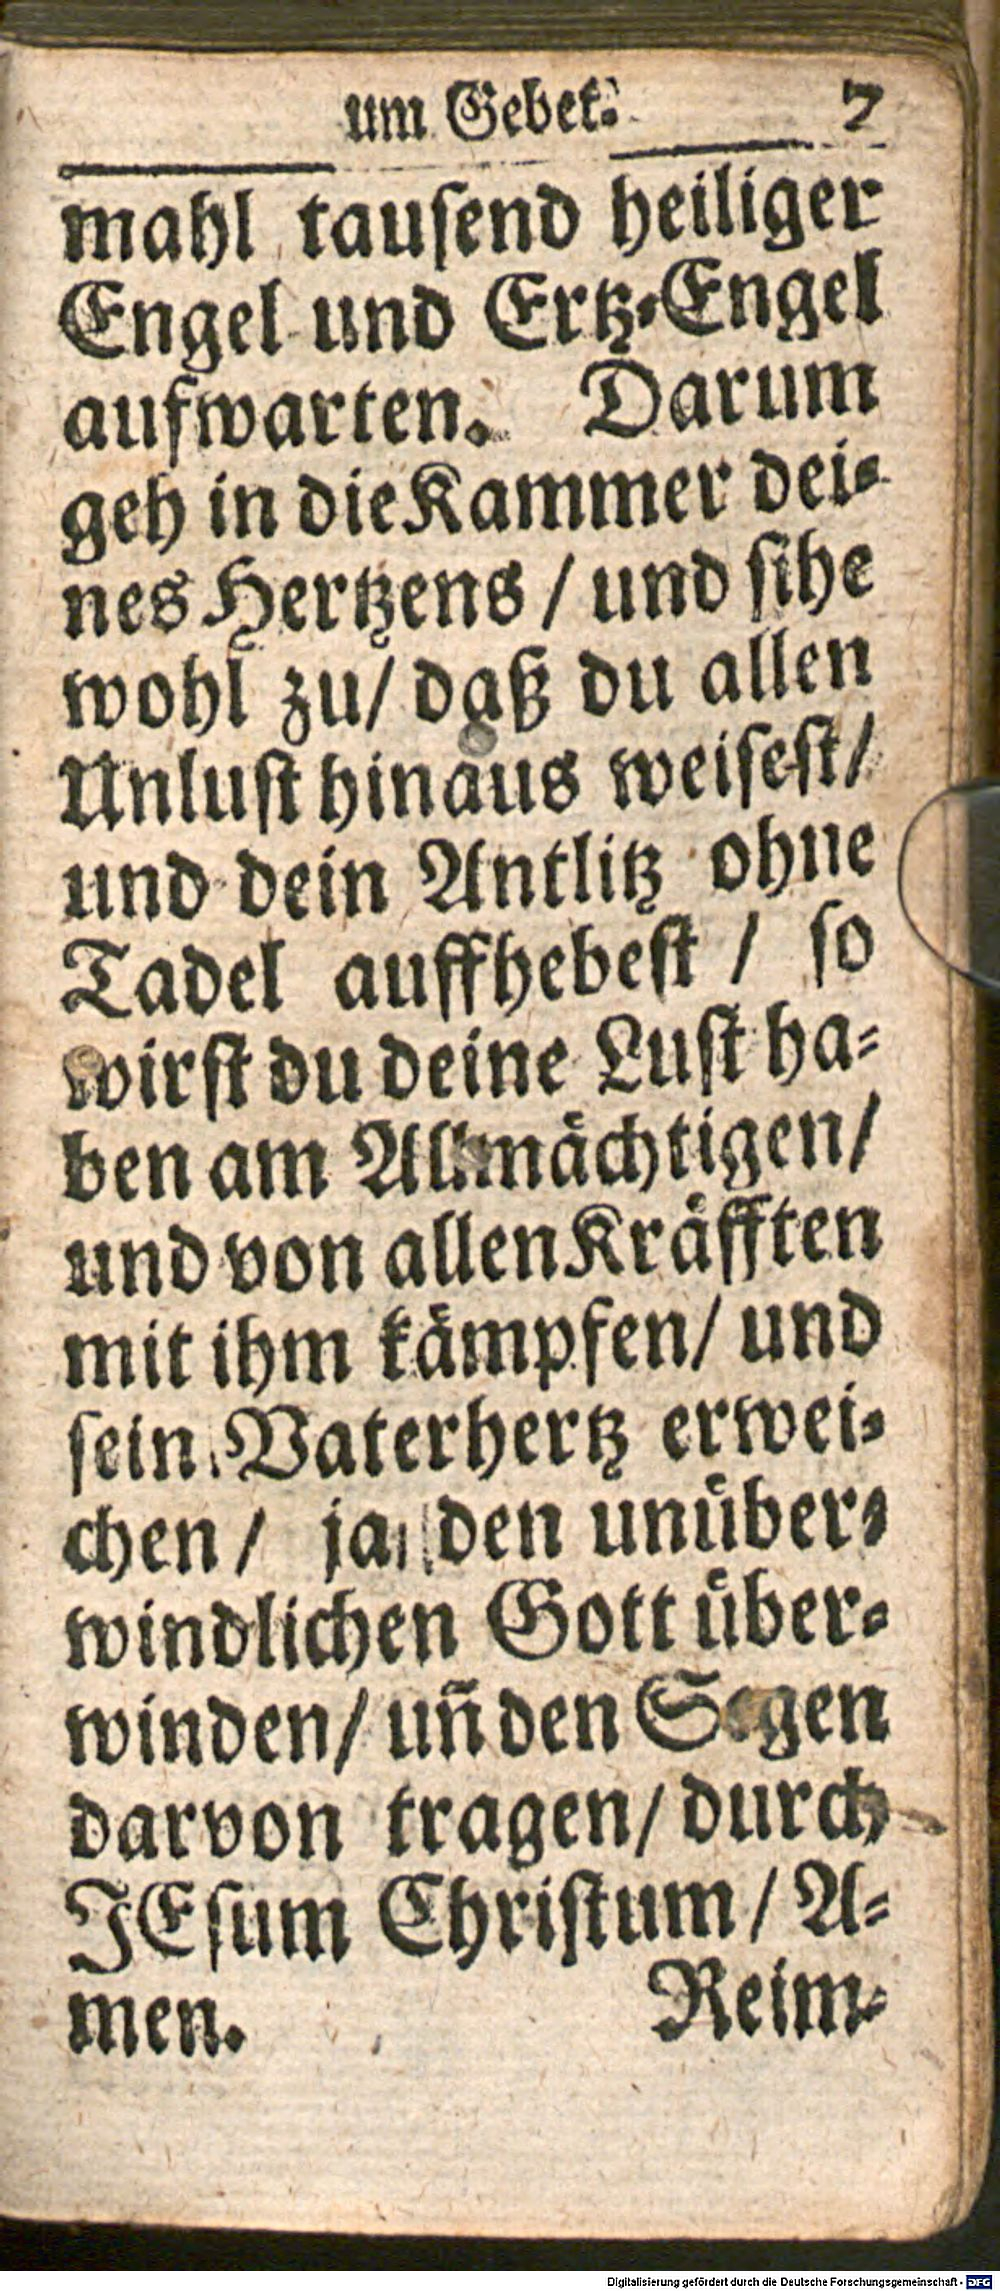 um Gebet. 7
mahl tauſend heiliger
Engel und Ertz-Engel
aufwarten. Darum
geh in die Kammer dei-
nes Hertzens / und ſihe
wohl zu / daß du allen
Unluſt hinaus weiſeſt /
und dein Antlitz ohne
Tadel auffhebeſt / ſo
wirſt du deine Luſt ha-
ben am Allmächtigen /
und von allen Kräfften
mit ihm kämpfen / und
ſein Vaterhertz erwei-
chen / ja den unüber-
windlichen Gott über-
winden / uñ den Segen
darvon tragen / durch
JEſum Chriſtum / A-
men. Reim-
Digitalisierung gefördert durch die Deutsche Forschungsgemeinschaft - DFG